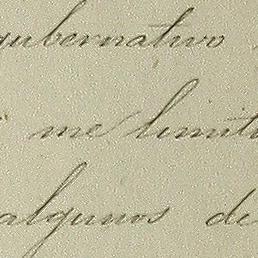 gubernativo
me limito
algunos de